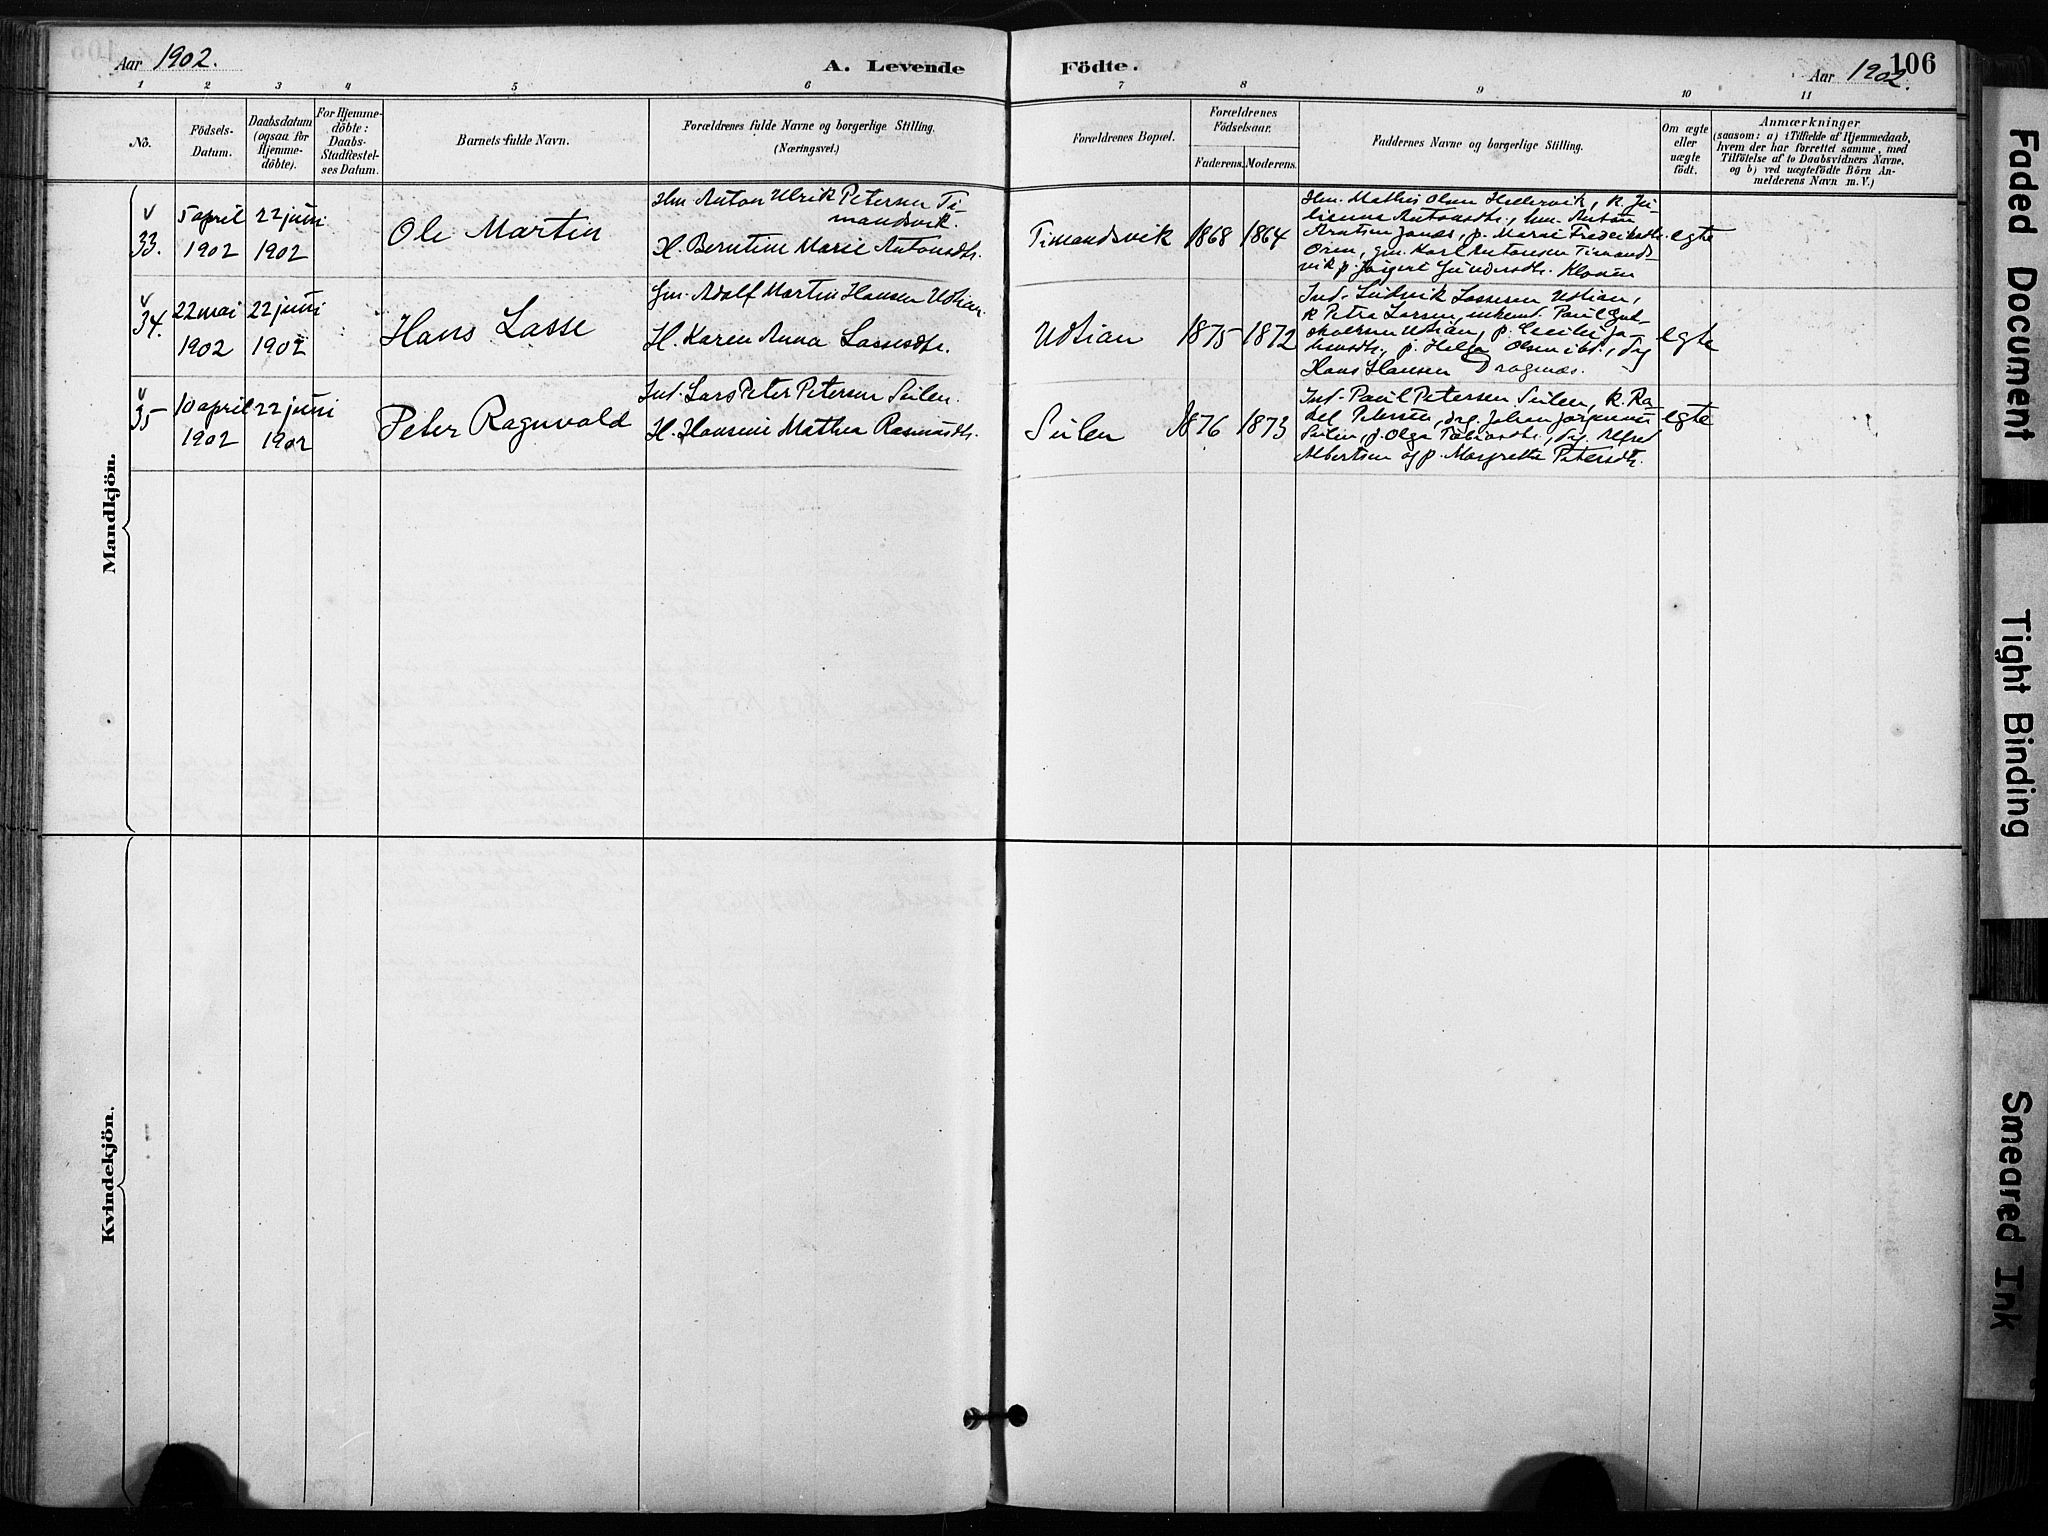 Aar 1902.
A. Levende Födte.
Aar 1902.
106
1 2 3 4 5 6 7 8 9 10 11
No.
Födsels-
Datum.
Daabsdatum
(ogsaa for
Hjemme-
döbte).
For Hjemme-
döbte:
Daabs-
Stadfæstel-
ses Datum.
Barnets fulde Navn.
Forældrenes fulde Navne og borgerlige Stilling.
(Næringsvei.)
Forældrenes Bopæl.
Forældrenes
Födselsaar.
Faderens. Moderens.
Faddernes Navne og borgerlige Stilling.
Om ægte
eller
uægte
födt.
Anmærkninger
(saasom: a) i Tilfælde af Hjemmedaab,
hvem der har forrettet samme, med
Tilföielse af to Daabsvidners Navne.
og b) ved uægtefödte Börn An-
melderens Navn m. V.)
Mandkjön.
v
33.
5 april
1902
22 juni
1902
Ole Martin
Hm Anton Ulrik Petersen Ti-
mandsvik.
H. Berntine Marie Antonsdtr.
Timandsvik 1868 1864
Hm. Mathis Olsen Hellervik, k. Ju-
lianna Antonsdtr., hm. Anton
Arntsen Janes, p. Marie Frederiksdtr.
Osen, gm. Karl Antonsen Timands-
vik p. Gundersdtr. Kloven
egte
v
34.
22 mai
1902
22 juni
1902
Hans Lasse
Gm. Adolf Martin Hansen Udtian
H. Karen Anna Lassesdtr.
Udtian 1875 1872
Ind. Ludvik Lassesen Udtian,
k Petra Larsen, Paul
Udtian, p. Cecilie Ja-
p. Helga Olsen ibd., Tj
Hans Hansen Dragnæs.
egte
v
35
10 april
1902
22 juni
1902
Peter Ragnvald
Ind. Lars Peter Petersen Seilen.
H. Hansine Mathea Rasmusdtr.
Seilen 1876 1873
Ind. Paul Petersen Seilen, k. Ra-
kel Petersen, dag. Johan Jörgensen
Seilen, p. Olga Tobiasdtr., Tj. Alfred
Albertsen og p. Margrethe Petersdtr.
egte
Kvindekjön.
Faded Document
Tight Binding
Smeared Ink